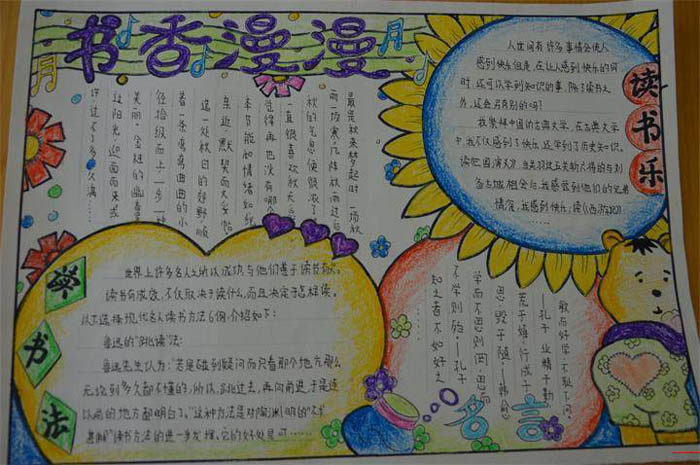 书香漫漫
月
月
最是秋来梦起时,一场秋
雨一场寒,几阵秋雨过后
秋的气息便飘浓了
一直很喜欢秋天
觉得再也没有哪个
季节能如情绪如
亲近,默契而不妥
选一处秋日的郊野,顺
着一条弯弯曲曲的小
径拾级而上,一步一
美丽。金桂的幽香
过阳光,迎面而来或
读书乐
人世间有许多事情会使人
感到快乐但是,在让人感到快乐的同
时,还可以学到知识的事,除了读书之
外,还会另有别的吗?
我崇拜中国的古典文学,在古典文学
中,我不仅感到了快乐,还学到了历史知识。
读《三国演义》,当关羽过五关斩六将的与刘
备古城相会后,我感受到他们的兄弟
情深,我感到快乐;读《西游记》
学书法
世界上许多名人之所以成功,与他们善于读书有关。
读书有成效,不仅取决于读什么,而且决定于怎样读。
以下选择现代名人读书方法6例,介绍如下:
鲁迅的"跳读"法:
鲁迅先生认为:"若是碰到疑问而只看那个地方,那么
无论到多久都不懂的,所以,跳过去,再向前进,于是连
以前的地方都明白了。"这种方法是对陶渊明的"不求
甚解"读书方法的进一步发挥。它的好处是可……
敏而好学,不耻下问。
—孔子 业精于勤
荒于嬉,行成于
思,毁于随—韩愈
学而不思则罔,思而
不学则殆。—孔子
知之者不如好之
名言